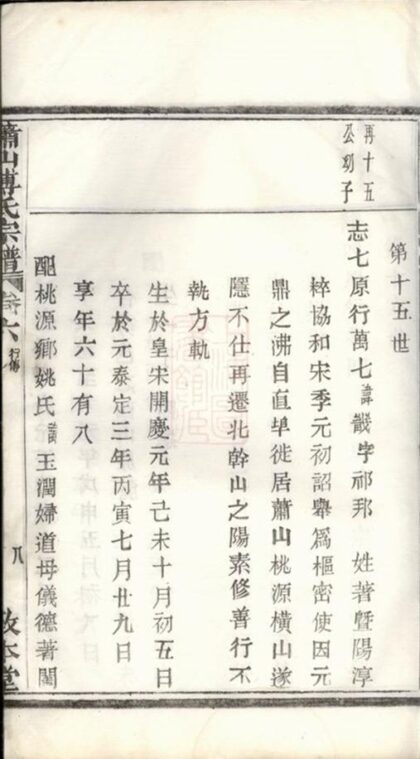 再十五
公幼子
第十五世
志七原行萬七諱戩字祁邦 姓著暨陽淳
梓協和宋季元初詔舉爲樞密使因元
鼎之沸自直埠徙居蕭山桃源橫山遂
隱不仕再遷北幹山之陽素修善行不
執方軌
生於皇宋開慶元年己未十月初五日
卒於元泰定三年丙寅七月廿九日
享年六十有八
配桃源鄉姚氏諱玉潤婦道母儀德著閨
蕭山傅氏宗譜 卷六 行傳 八 敦本堂